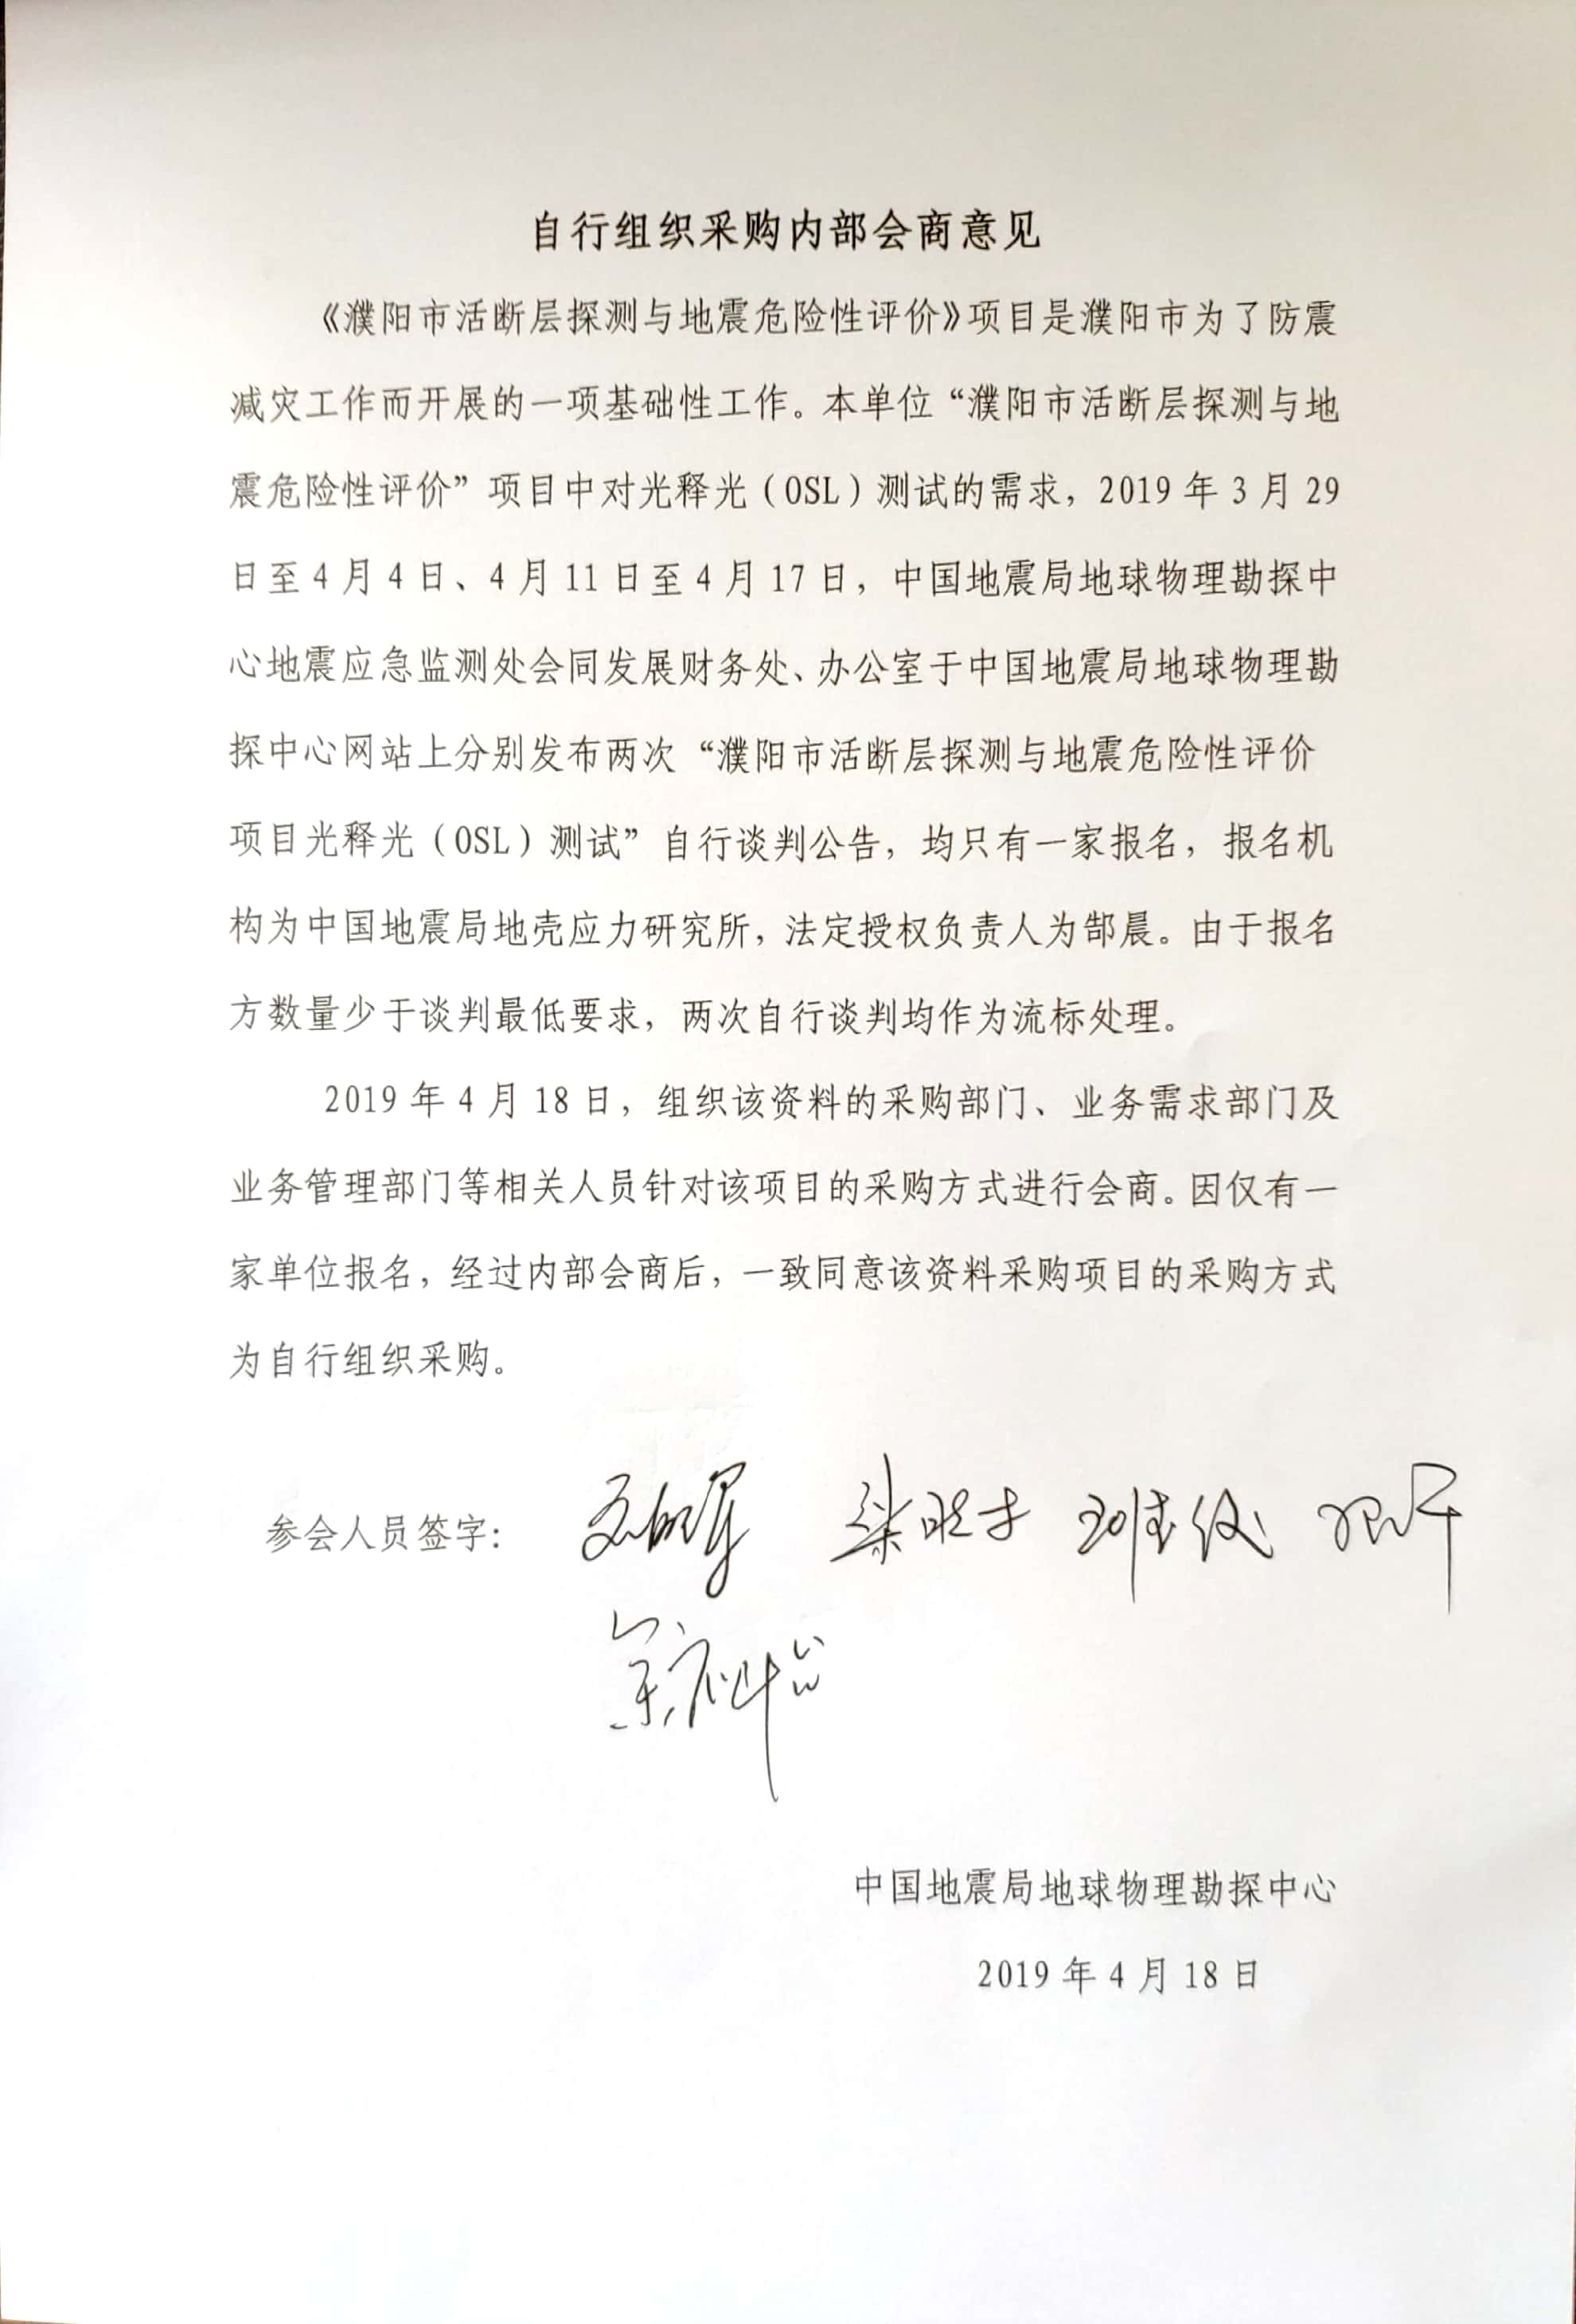 自行组织采购内部会商意见
《濮阳市活断层探测与地震危险性评价》项目是濮阳市为了防震
减灾工作而开展的一项基础性工作。本单位“濮阳市活断层探测与地
震危险性评价”项目中对光释光（OSL）测试的需求，2019年3月29
日至4月4日、4月11日至4月17日，中国地震局地球物理勘探中
心地震应急监测处会同发展财务处、办公室于中国地震局地球物理勘
探中心网站上分别发布两次“濮阳市活断层探测与地震危险性评价
项目光释光（OSL）测试”自行谈判公告，均只有一家报名，报名机
构为中国地震局地壳应力研究所，法定授权负责人为郜晨。由于报名
方数量少于谈判最低要求，两次自行谈判均作为流标处理。
2019年4月18日，组织该资料的采购部门、业务需求部门及
业务管理部门等相关人员针对该项目的采购方式进行会商。因仅有一
家单位报名，经过内部会商后，一致同意该资料采购项目的采购方式
为自行组织采购。
参会人员签字：
中国地震局地球物理勘探中心
2019年4月18日